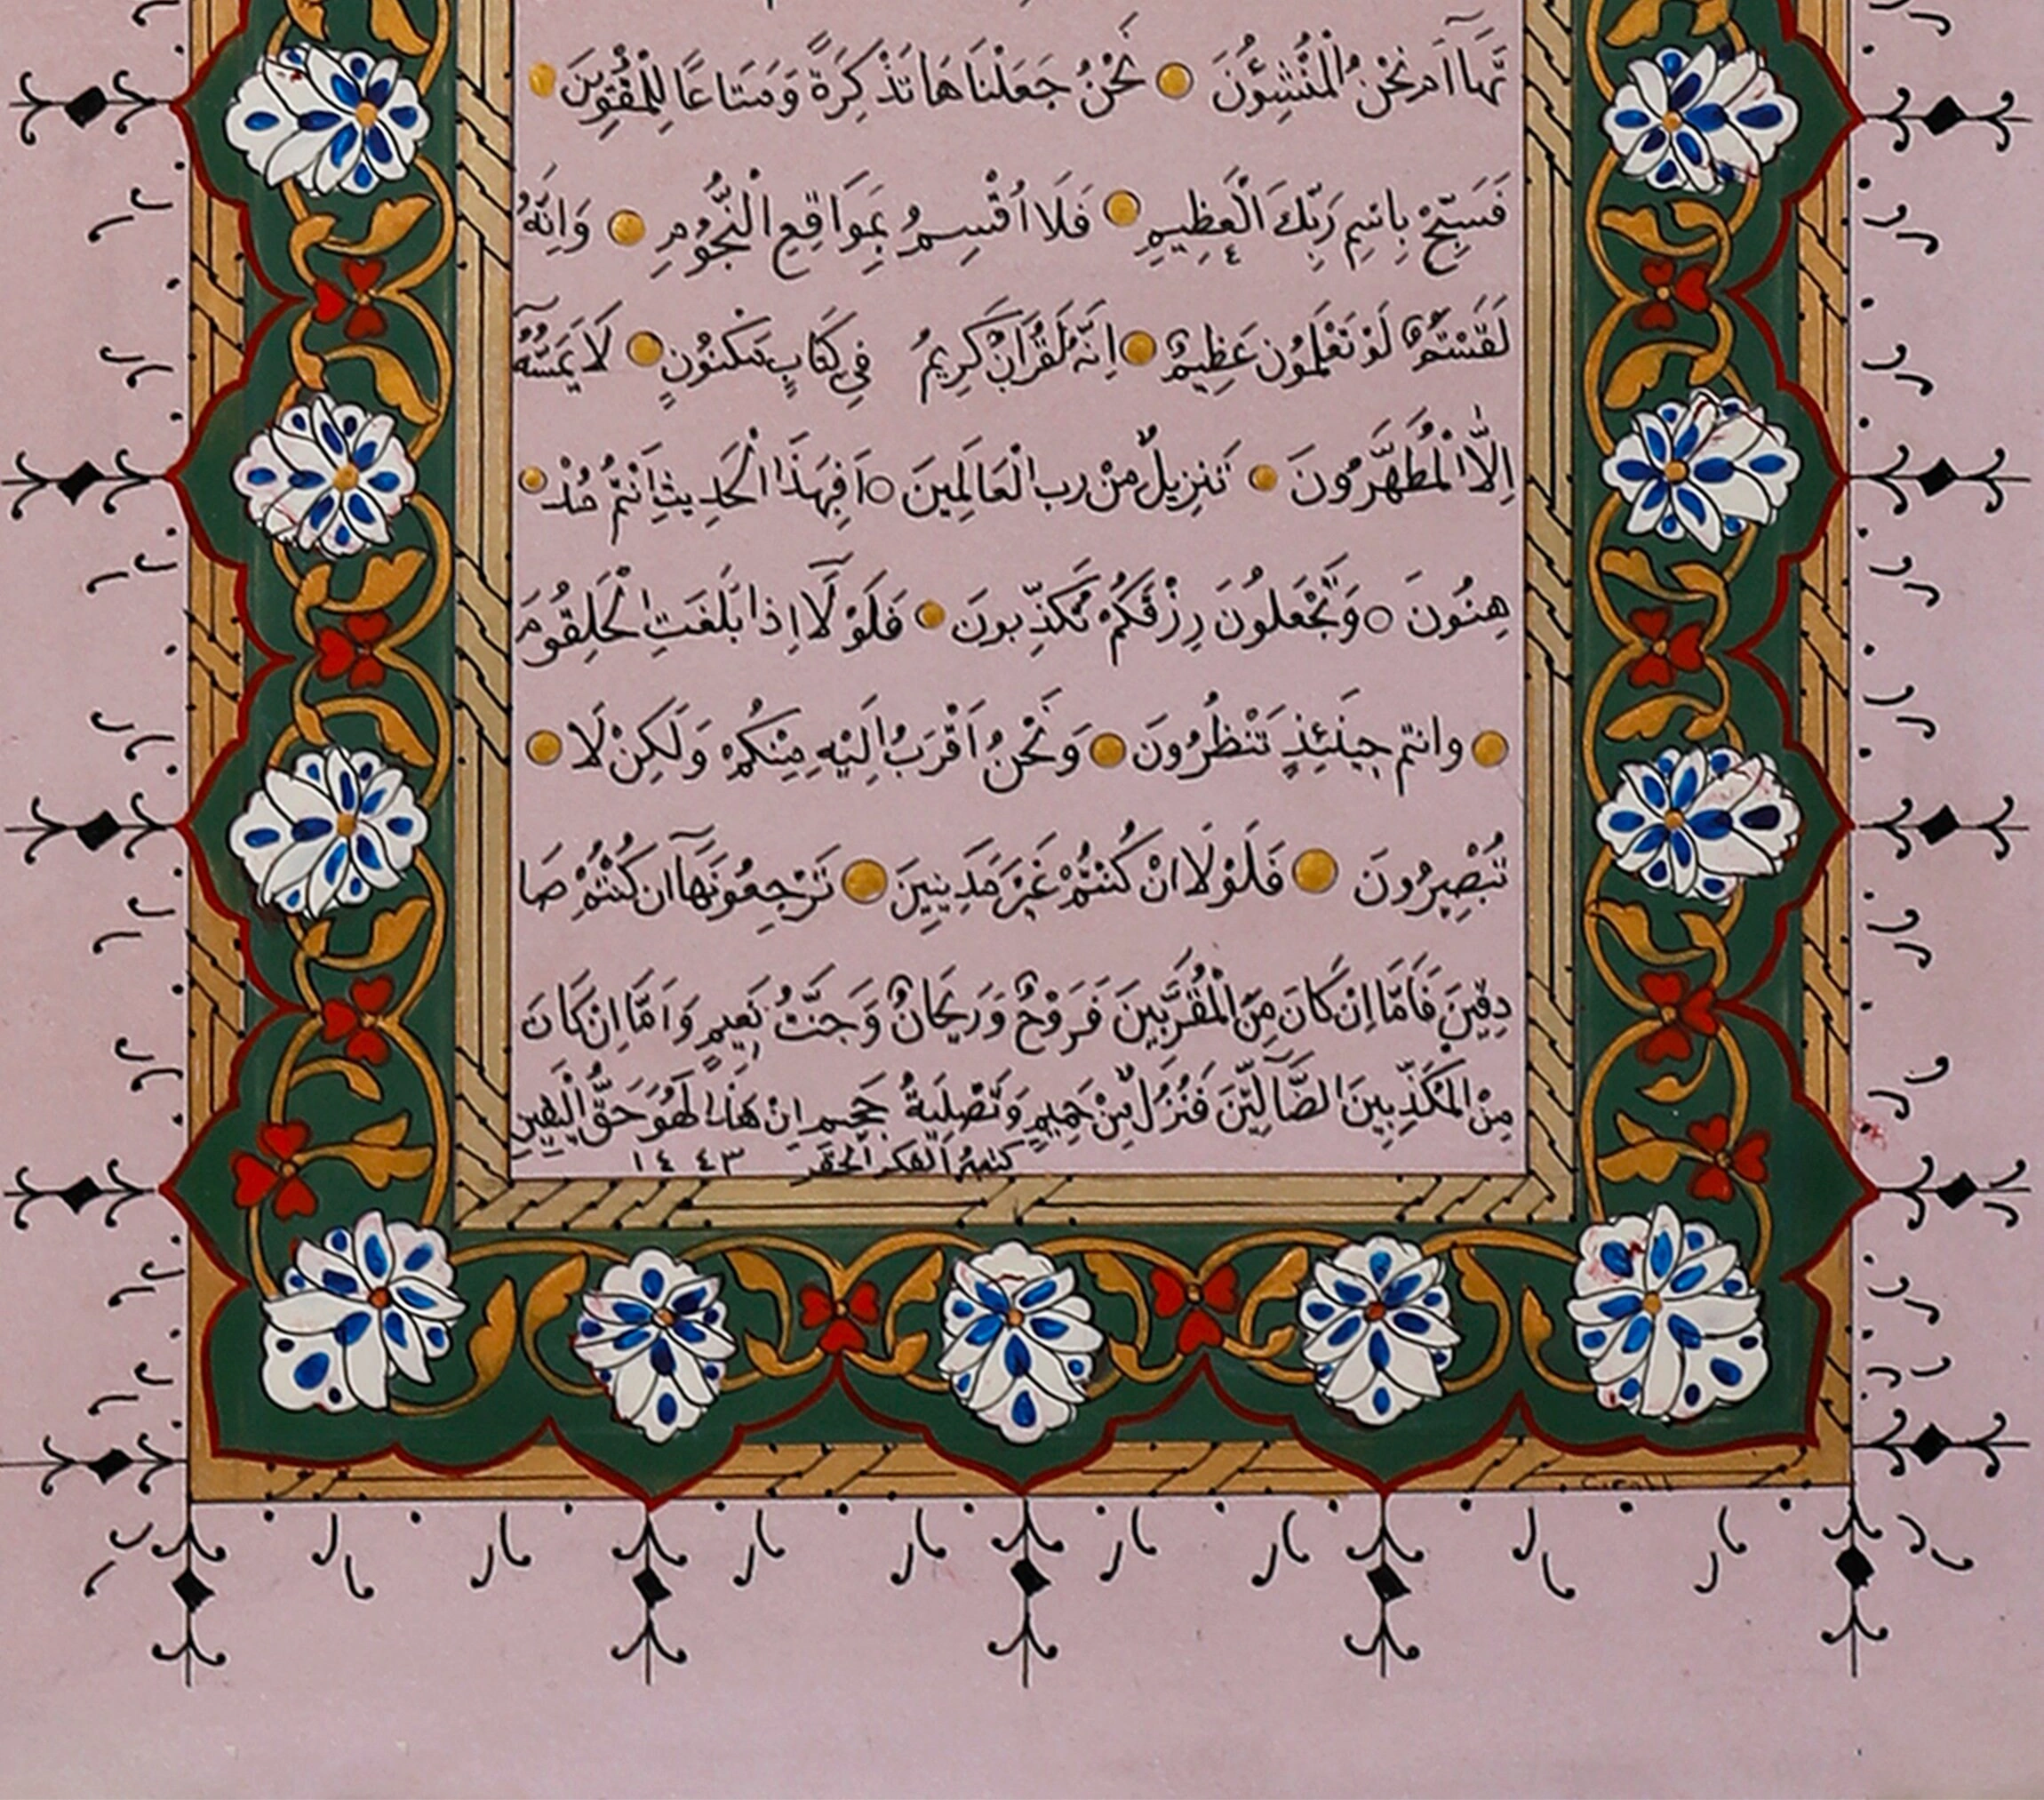 تَهَآ اَمْ نَحْنُ الْمُنْشِؤُنَ نَحْنُ جَعَلْنَاهَا تَذْكِرَةً وَمَتَاعًا لِلْمُقْوِينَ
فَسَبِّحْ بِاسْمِ رَبِّكَ الْعَظِيمِ فَلَا اُقْسِمُ بِمَوَاقِعِ النُّجُومِ وَاِنَّهُ
لَقَسَمٌ لَوْ تَعْلَمُونَ عَظِيمٌ اِنَّهُ لَقُرْاٰنٌ كَرِيمٌ فِي كِتَابٍ مَكْنُونٍ لَا يَمَسُّهُٓ
اِلَّا الْمُطَهَّرُونَ تَنْزِيلٌ مِنْ رب الْعَالَمِينَ اَفَبِهٰذَا الْحَدِيثِ اَنْتُمْ مُدْ
هِنُونَ وَتَجْعَلُونَ رِزْقَكُمْ تُكَذِّبُونَ فَلَوْلَٓا اِذَا بَلَغَتِ الْحُلْقُومَ
وانتم حِينَئِذٍ تَنْظُرُونَ وَنَحْنُ اَقْرَبُ اِلَيْهِ مِنْكُمْ وَلٰكِنْ لَا
تُبْصِرُونَ فَلَوْلَا انْ كُنْتُمْ غَيْرَ مَدِينِينَ تَرْجِعُونَهَآ ان كُنْتُمْ صَا
دِقِينَ فَاَمَّا اِنْ كَانَ مِنَ الْمُقَرَّبِينَ فَرَوْحٌ وَرَيْحَانٌ وَجَنَّتُ نَعِيمٍ وَاَمَّا اِنْ كَانَ
مِنَ الْمُكَذِّبِينَ الضَّٓالِّينَ فَنُزُلٌ مِنْ حَمِيمٍ وَتَصْلِيَةُ جَحِيمٍ اِنَّ هٰذَا لَهُوَ حَقُّ الْيَقِينِ
كتبه الفقير الحقير ١٤٤٣